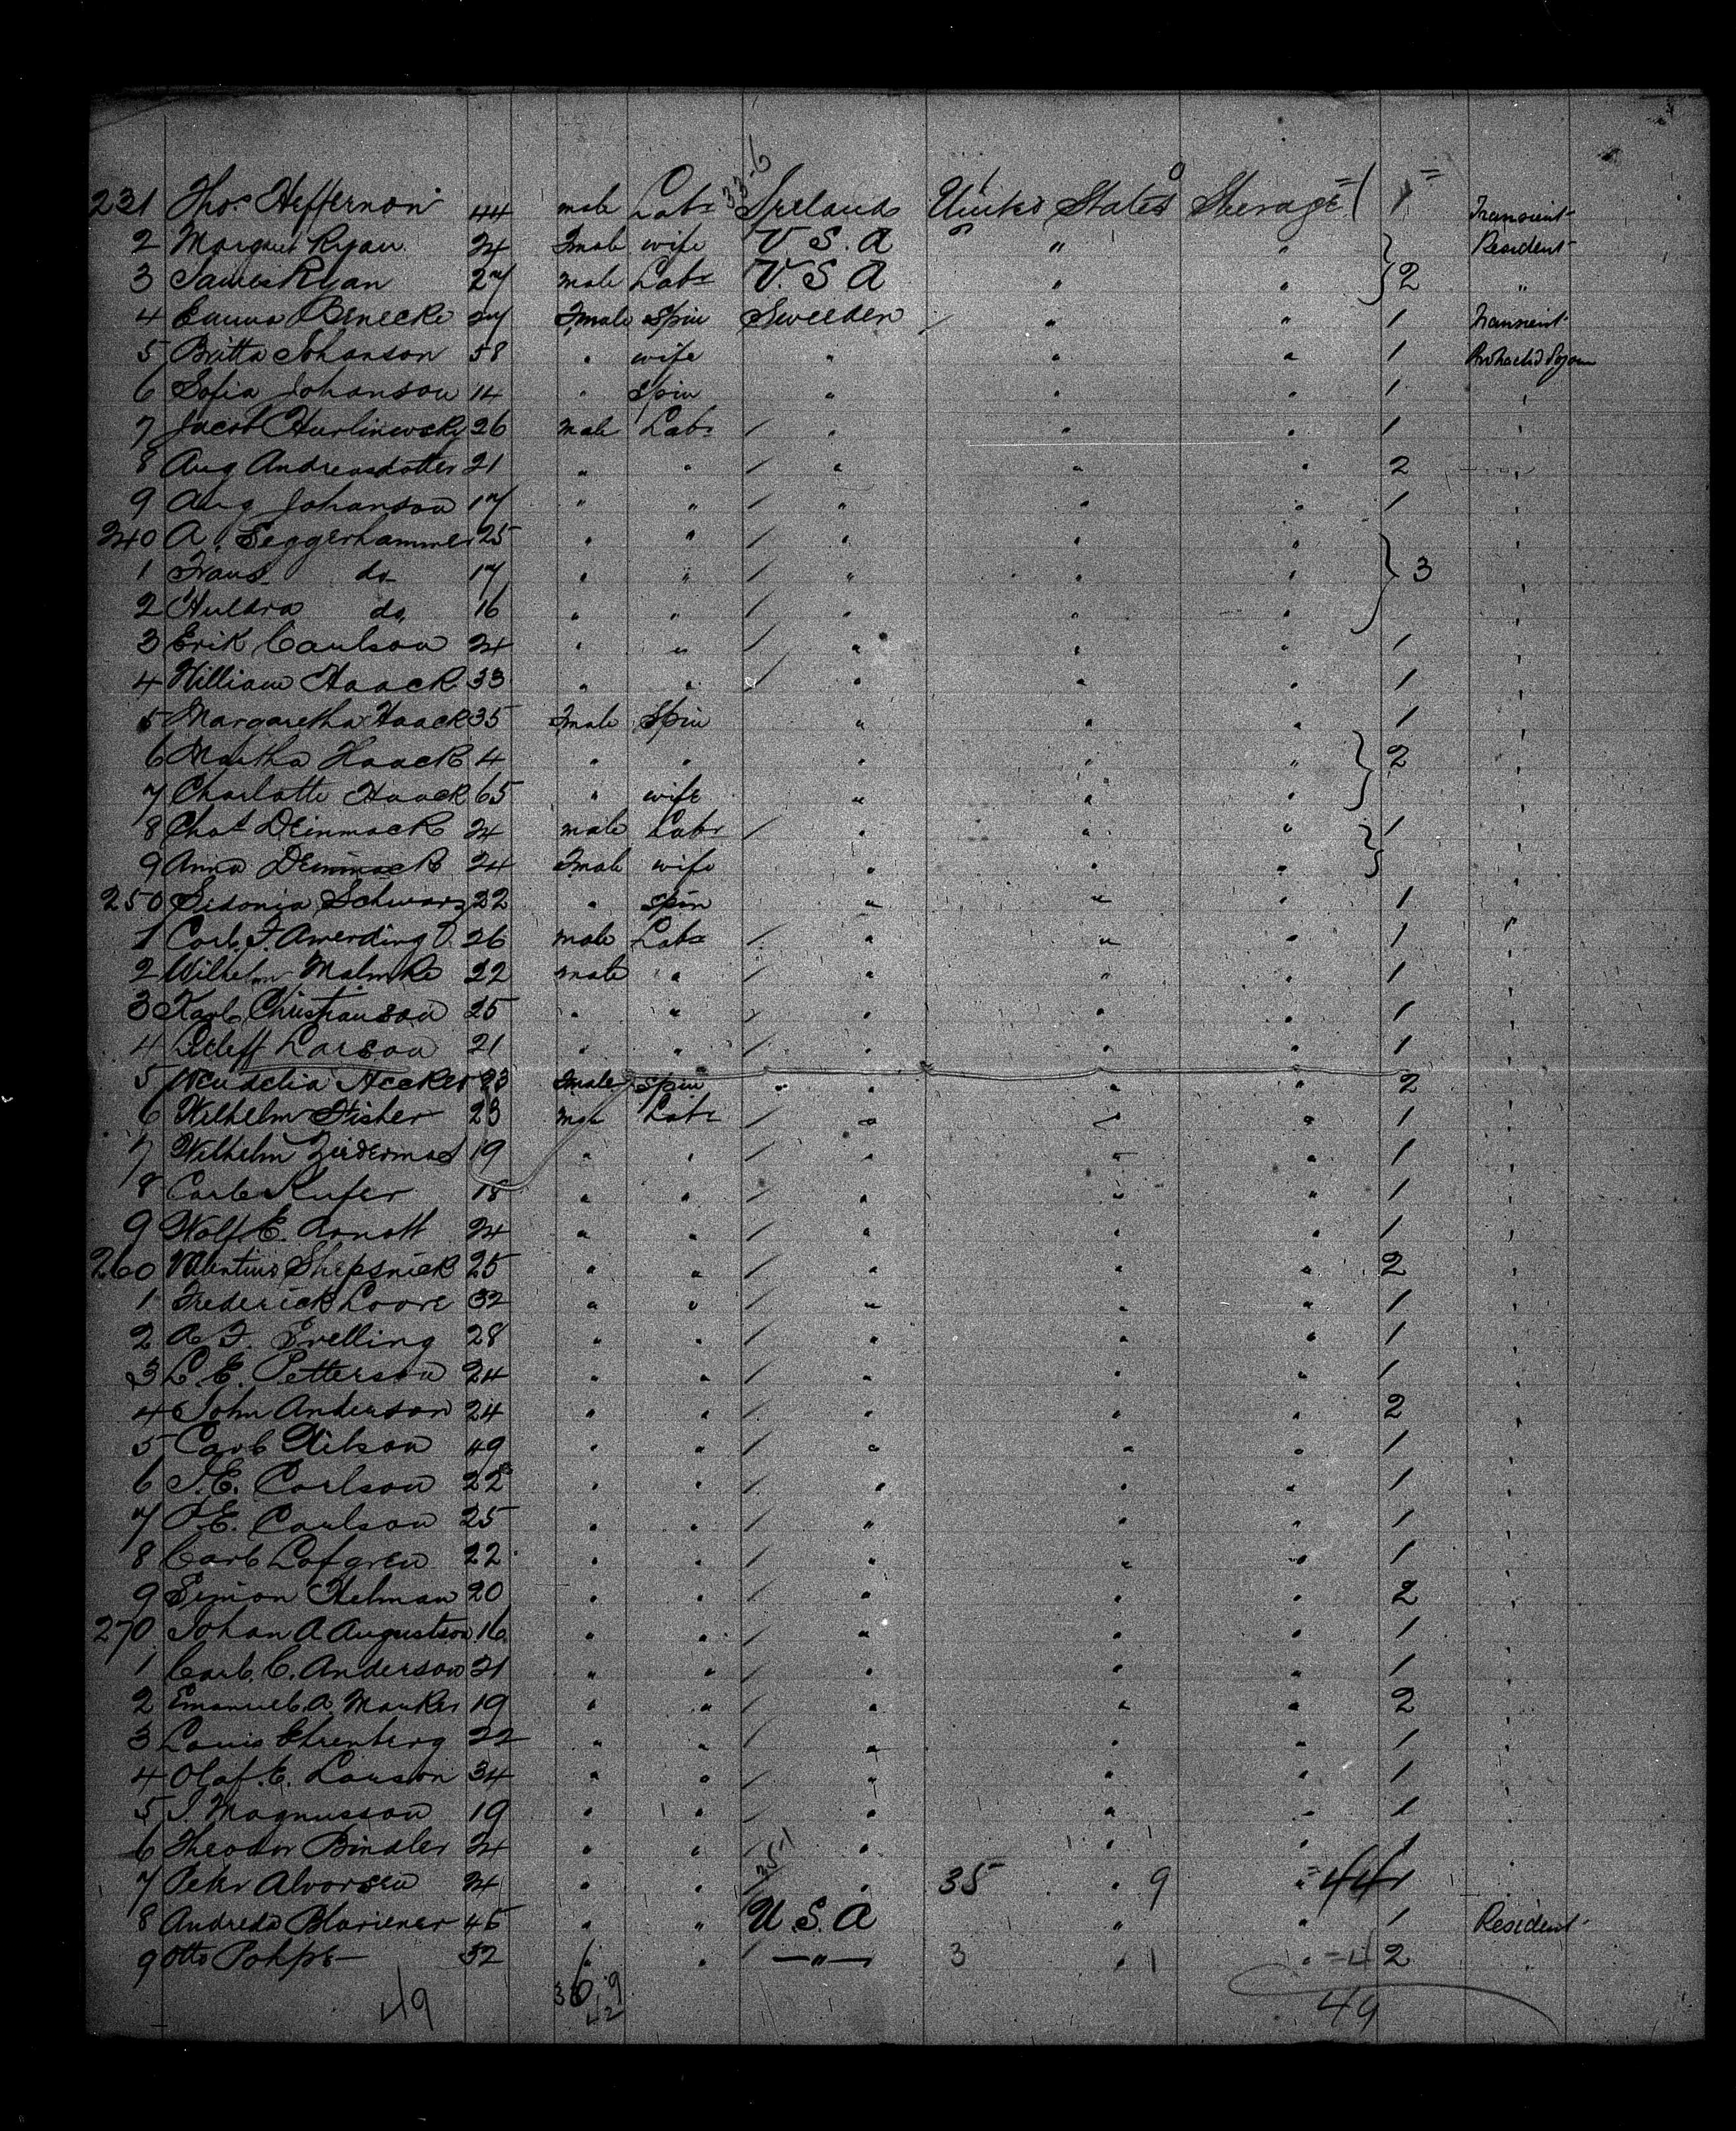 33-6
231 Thos. Heffernon 44 male Labr Ireland United States Steerage 1 Transient
2 Margaret Ryan 24 Fmale wife U.S.A " " Resident
3 James Ryan 27 male Labr U.S.A " " } 2 "
4 Emma Benecke 27 Fmale Spin Sweeden " " 1 Transient
5 Britta Johanson 58 " wife " " " 1 Protracted Sojourn
6 Sofia Johanson 14 " Spin " " " 1 "
7 Jacob Hurlinewsky 26 male Labr " " " 1 "
8 Aug Andreasdotter 21 " " " " " 2 "
9 Aug Johanson 17 " " " " " 1 "
240 A. Seggerhammer 25 " " " " " "
1 Frans do 17 " " " " " } 3 "
2 Huldra do 16 " " " " " "
3 Erik Caulson 24 " " " " " 1 "
4 William Haack 33 " " " " " 1 "
5 Margaretha Haack 35 Fmale Spin " " " 1 "
6 Martha Haack 4 " " " " " } 2 "
7 Charlotte Haack 65 " wife " " " "
8 Chas Deinmack 24 male Labr " " " } 1 "
9 Anna Deinmack 24 Fmale wife " " " "
250 Sidonia Schwarz 22 " spin " " " 1 "
1 Carl. F. Amerding 26 male Labr " " " 1 "
2 Wilhelm Malmke 22 male " " " " 1 "
3 Karl Christianson 25 " " " " " 1 "
4 Detleff Larson 21 " " " " " 1 "
5 Wendelia Hecker 23 Fmale Spin " " " 2 "
6 Wilhelm Fisher 23 male Labr " " " 1 "
7 Wilhelm 19 " " " " " 1 "
8 Carl Rufer 18 " " " " " 1 "
9 Wolf E. Arnott 24 " " " " " 1 "
260 Valentius Shepsnick 25 " " " " " 2 "
1 Frederick Loore 32 " " " " " 1 "
2 A F. Swelling 28 " " " " " 1 "
3 L. E. Petterson 24 " " " " " 1 "
4 John Anderson 24 " " " " " 2 "
5 Carl Nilson 49 " " " " " 1 "
6 J. E. Carlson 22 " " " " " 1 "
7 P. E. Carlson 25 " " " " " 1 "
8 Carl Lofgren 22 " " " " " 1 "
9 Simon Helman 20 " " " " " 2 "
270 Johan A Augustson 16 " " " " " 1 "
1 Carl. C. Anderson 21 " " " " " 1 "
2 Emanuel. A. Manker 19 " " " " " 2 "
3 Louis Ehrenberg 22 " " " " " 1 "
4 Olaf. E. Larson 34 " " " " " 1 "
5 J. Magnusson 19 " " " " " 1 "
6 Theodor Bindler 24 " " " " " 1 "
7 Peter Alvorsen 24 " " " 35 " 9 " =44 1 "
8 Andreds 45 " " U.S.A " " 1 Resident
9 Otto Pohps 32 " " " 3 " 1 " =4 2 "
49 36 9 42 49